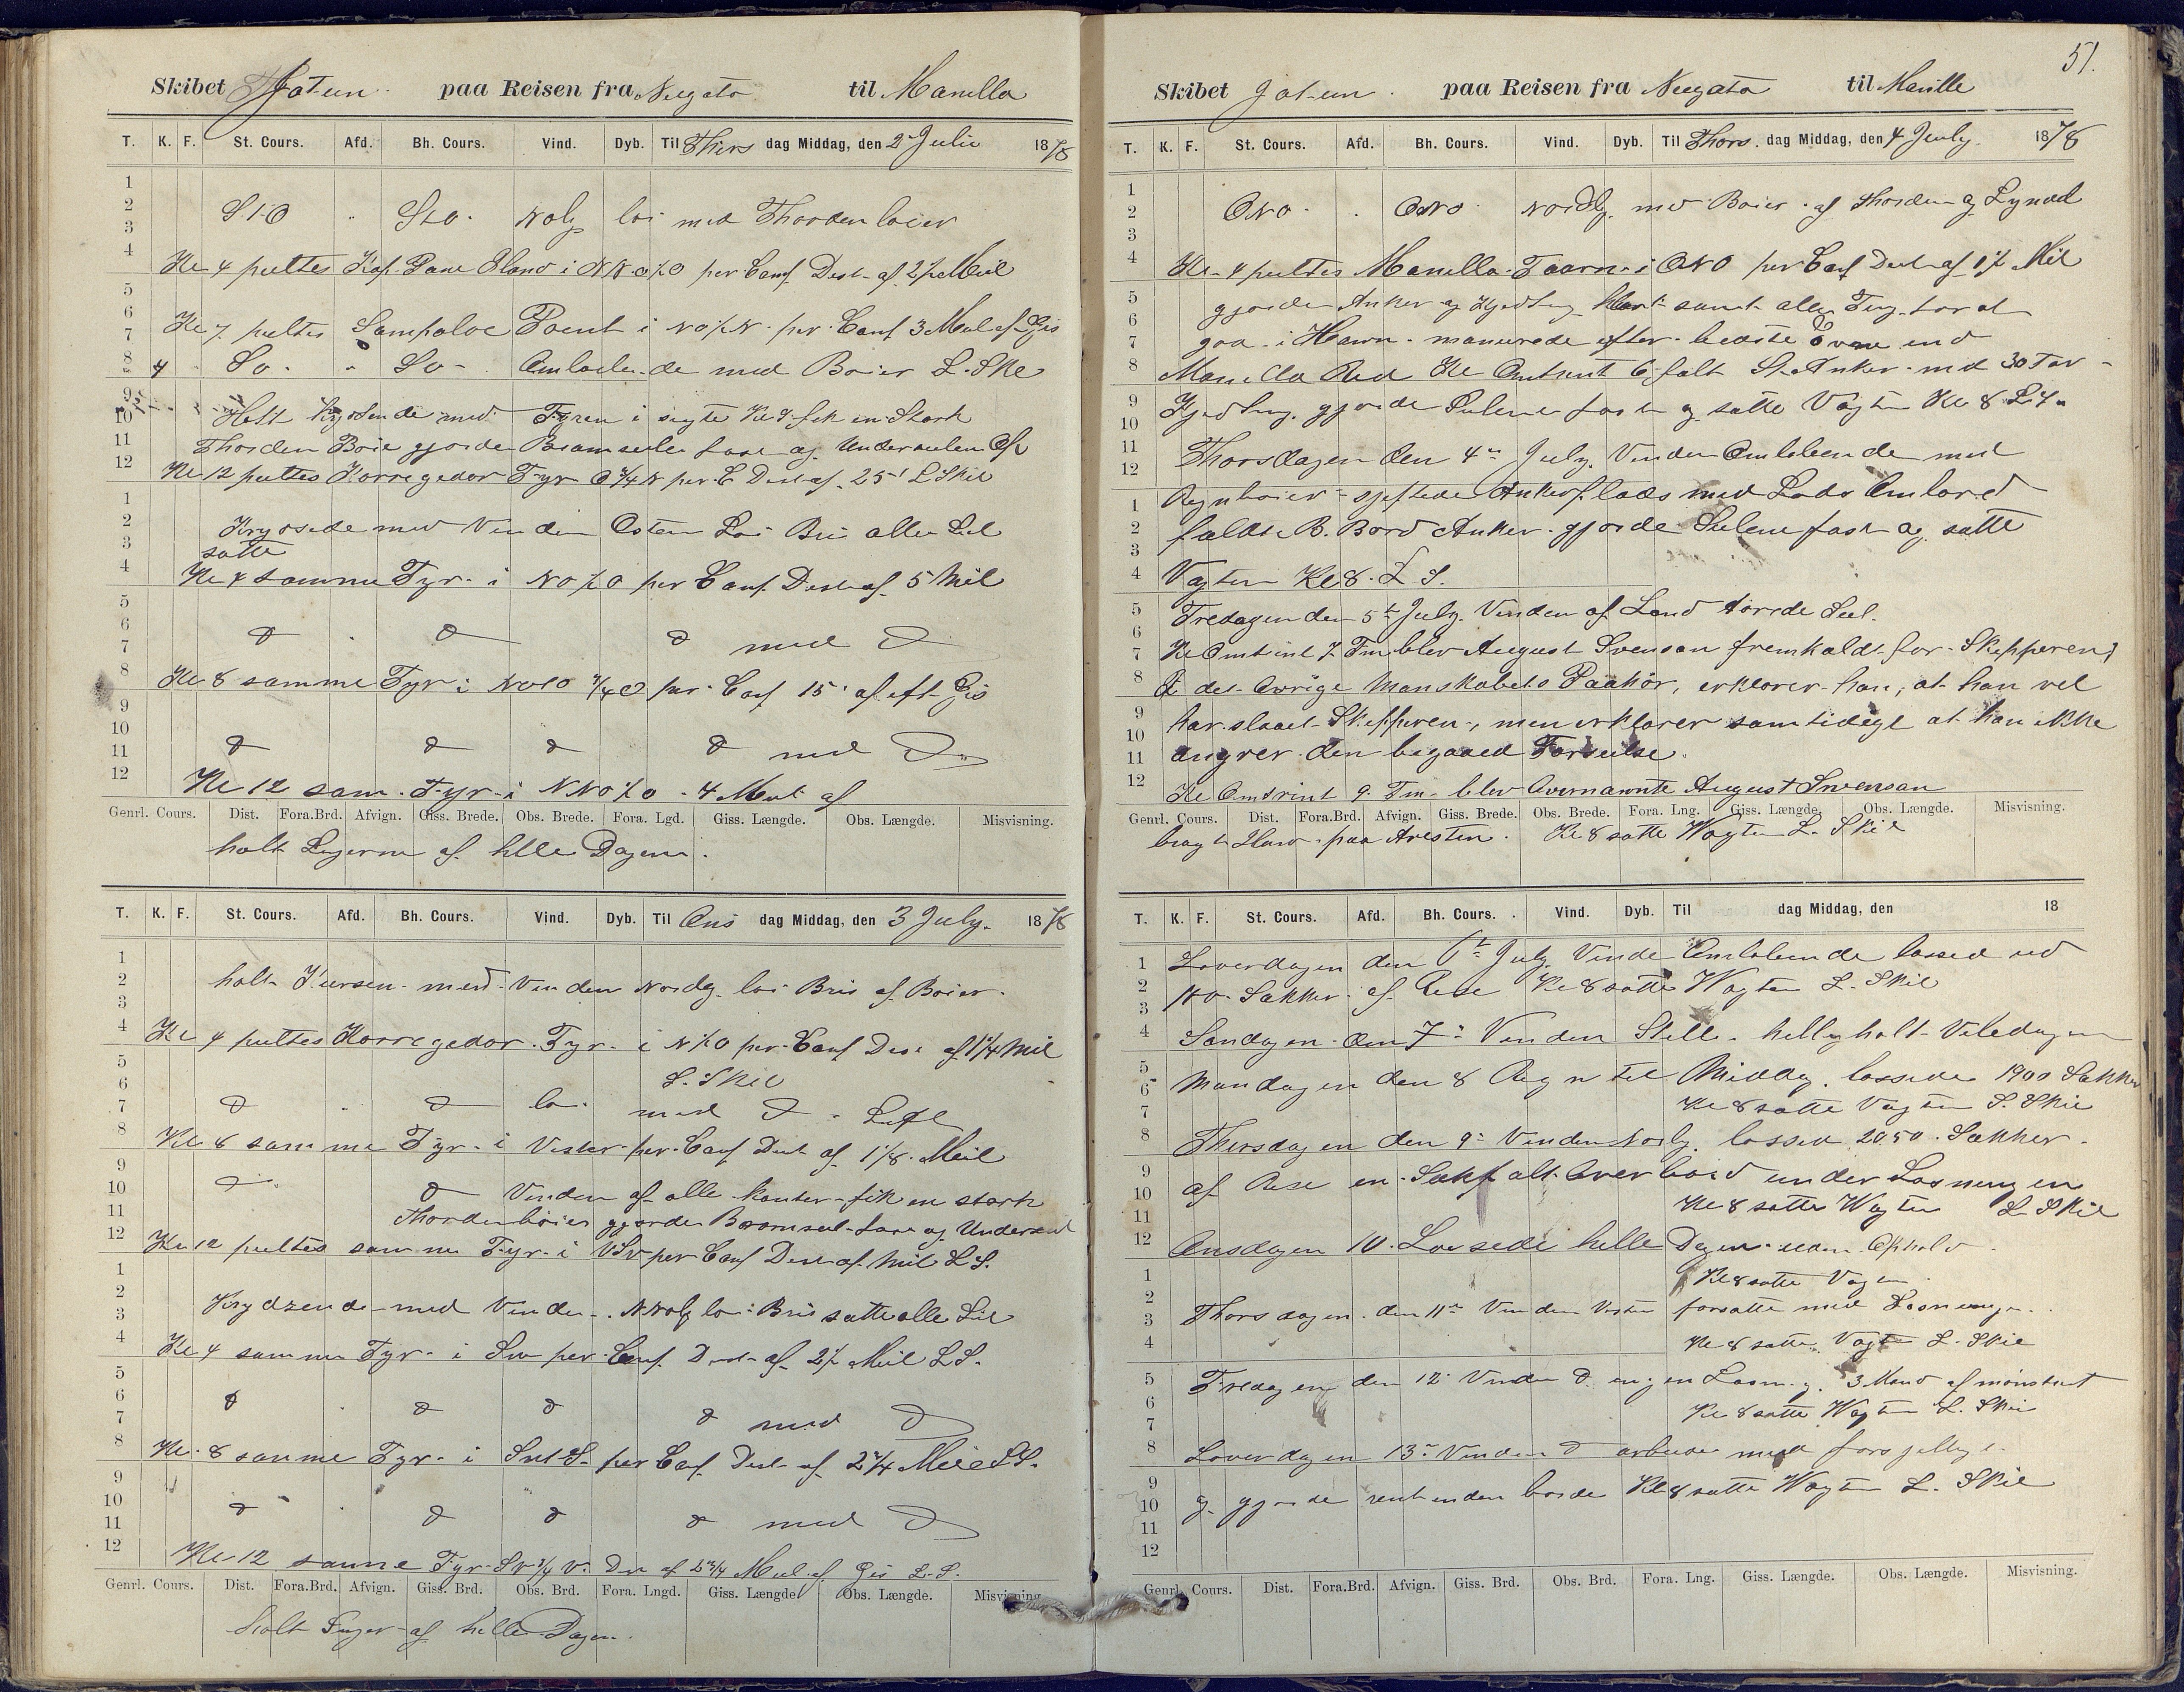 Skibet Jotun paa Reisen fra Neegata til Manilla
T. K. F. St. Cours. Afd. Bh. Cours. Vind. Dyb. Til Thirs dag Middag, den 2 Julii 1878
1
2
3 StO " Sto Nolg loi med Thorden boier
4
Kl 4 peiltes Kap. Pane Eland i NNO½O per Comp. Dist af 2½ Meil
5
6
7 Kl 7 peiltes Sampaloc Poent i NO½N. per Comp 3 Mil af Gis
8 4 So. " So - Omloben-de med Boier L. Skil
9
10 Holt krydsende med Fyren i sigte Kl 9 fik en Stark
11 Thorden Boie gjorde Bramseilen fast og Underseilen Op
12 Kl 12 peiltes Korregedor Fyr O¾N per C Dist af 25' L Skil
1
2 Krydsede med Vinden Osten Loi Bris alle Seil
3 satte
4 Kl 4 samme Fyr i NO½O per Comp. Dist af 5 Mil
5
6 d " d d med d
7
8 Kl 8 samme Fyr i NOtO ¾O per Comp 15' af eft Gis
9
10
11 d d d d med d
12 Kl 12 sam. Fyr i NNO½O - 4 Meil af
Genrl. Cours. Dist. Fora.Brd. Afvign. Giss. Brede. Obs. Brede. Fora. Lgd. Giss. Længde. Obs. Længde. Misvisning.
holt Lugerne af hele Dagen.
T. K. F. St. Cours. Afd. Bh. Cours. Vind. Dyb. Til Ons dag Middag, den 3 July. 1878
1
2 holt Kursen med Vinden Nordlg loi Bris af Boier.
3
4 Kl 4 peiltes Korregedor Fyr i N½O per Comp Dist af 1¼ Mil
5 L. Skil
6
7 d " d loi med d - Luft
8 Kl 8 samme Fyr i Vister per Comp Dist af 1⅛ Meil
9
10 d d Vinden af alle kanter fik en stark
11 Thordenboier gjorde Bramseil fast og Underseil
12 Kl 12 peiltes samme Fyr i VSv per Comp Dist af Mil L S.
1
2
3 Krydzende med Vinden NNVolg loi Bris satte alle Seil
4 Kl 4 samme Fyr i Sv per Comp. Dist af 2½ Meil L S.
5
6
7 d " d d d med d
8 Kl 8 samme Fyr i SvtS. per Comp Dist af 2¾ Meil L S.
9
10
11 d " d d d med d
12 Kl 12 samme Fyr Sv¾V. Dist af 2¾ Meil af Gis L. S.
Genrl. Cours. Dist. Fora.Brd. Afvign. Giss. Brd. Obs. Brd. Fora. Lngd. Giss. Længde Obs. Længde. Misvisning
holt Luger af hele Dagen.
51.
Skibet Jotun paa Reisen fra Neegata til Manille
T. K. F. St. Cours. Afd. Bh. Cours. Vind. Dyb. Til Thors. dag Middag, den 4 July. 1878
1
2 ONO " ONO Nordlg. med Boier af Thorden og Lynild
3
4 Kl 4 peiltes Manilla Taarn i ONO per Comp Dist af 1½ Mil
5 gjorde Anker og Kjedting klart samt alle Ting for at
6
7 gaa i Havn. manuvrede efter bedste Evne ind
8 Manilla Red Kl Omtrent 6 falt St. Anker med 30 Fav
9
10 Kjedting. gjorde Seilene fast og satte Vagten Kl 8 L. S.
11
12 Thorsdagen den 4de July. Vinden Omlobende med
1 Regnboier sjeftede Ankerplads med Lods Ombord
2 faldt B. Bord Anker gjorde Seilene fast og satte
3
4 Vagten Kl 8. L S.
5 Fredagen den 5te July. Vinden af Land torrede Seil.
6
7 Kl Omtrint 7 Fm blev August Svensan fremkaldt for Skipperen,
8 I det Ovrige Manskabets Paahör, erklarer han, at han vel
9
10 har slaaet Skipperen, men erklarer samtidigt at han ikke
11 angrer den begaaed Forseelse.
12 Kl Omtrint 9 Fm blev Overnavnte August Svensan
Genrl. Cours. Dist. Fora.Brd. Afvign. Giss. Brede. Obs. Brede. Fora. Lng. Giss. Længde. Obs. Længde. Misvisning.
bragt iland paa Aresten. Kl 8 satte Wagten L. Skil
T. K. F. St. Cours. Afd. Bh. Cours. Vind. Dyb. Til dag Middag, den 18
1 Loverdagen den 6te July Vinde Omlobende lossed ud
2 180 Sakker af Rise Kl 8 satte Wagten L. Skil
3
4 Sondagen den 7de Vinden Stille. hellig holt Viledagen
5
6 Mandagen den 8 Regn til Middag. lossede 1900 Sakker
7 Kl 8 satte Vagten L. Skil
8 Thirsdagen den 9de Vinden Nordlg. lossed 2050 Sakker
9
10 af Rise en Sak falt Over bord under Losningen
11 Kl 8 satte Wagten L Skil
12 Onsdagen 10. Lossede helle Dagen uden Ophold
1 Kl 8 satte Vagen
2
3 Thorsdagen den 11te Vinden Vesten forsatte med Losningen.
4 Kl 8 satte Vagten L. Skil
5 Fredagen den 12 Vinden d. ingen Losning. 3 Mand afmönstret
6
7 Kl 8 satte Wagten L. Skil
8 Loverdagen 13de Vinden d arbeide med forsjellige
9
10 og gjorde rent under borde Kl 8 satte Wagten L. Skil
11
12
Genrl. Cours. Dist. Fora.Brd. Afvign. Giss. Brd. Obs. Brd. Fora. Lng. Giss. Længde. Obs. Længde. Misvisning.